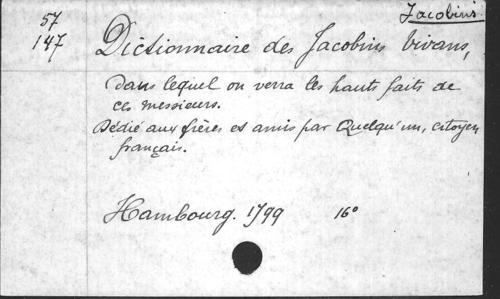 Jacobins
57
147
Dictionnaire des Jacobins vivans,
dans lequel on verra les hauts faits de
ces messieurs.
Dédié aux frères et amis par Quelqu'un, citoyen
français.
Hambourg. 1799 16°